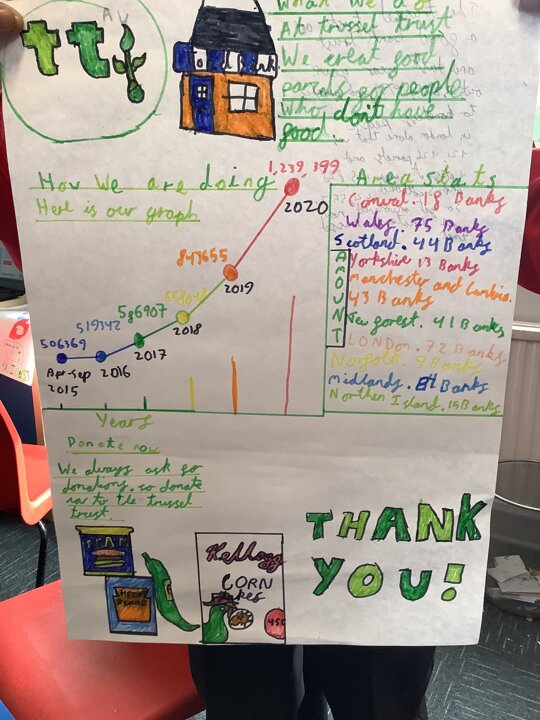 tt
Food Bank
What we do
At trussel trust
We creat good
parcels for people
who don't have
good.
How we are doing
Here is our graph
506369
519342
586907
658048
843655
1,239,399
Apr-Sep
2015
2016
2017
2018
2019
2020
Years
AMOUNT
Area stats
Cornwal. 18 Banks
Wales. 75 Banks
Scotland. 44 Banks
Yorkshire 13 Banks
Manchester and Cumbria.
43 Banks
New forest. 41 Banks
LONDon. 72 Banks
Norfolk. 9 Banks
Midlands. Banks
Northen Island. 15 Banks
Donate now
We always ask for
donations. so donate
now to the trussel
trust.
Kellogg
CORN
flakes
45
THANK
YOU!